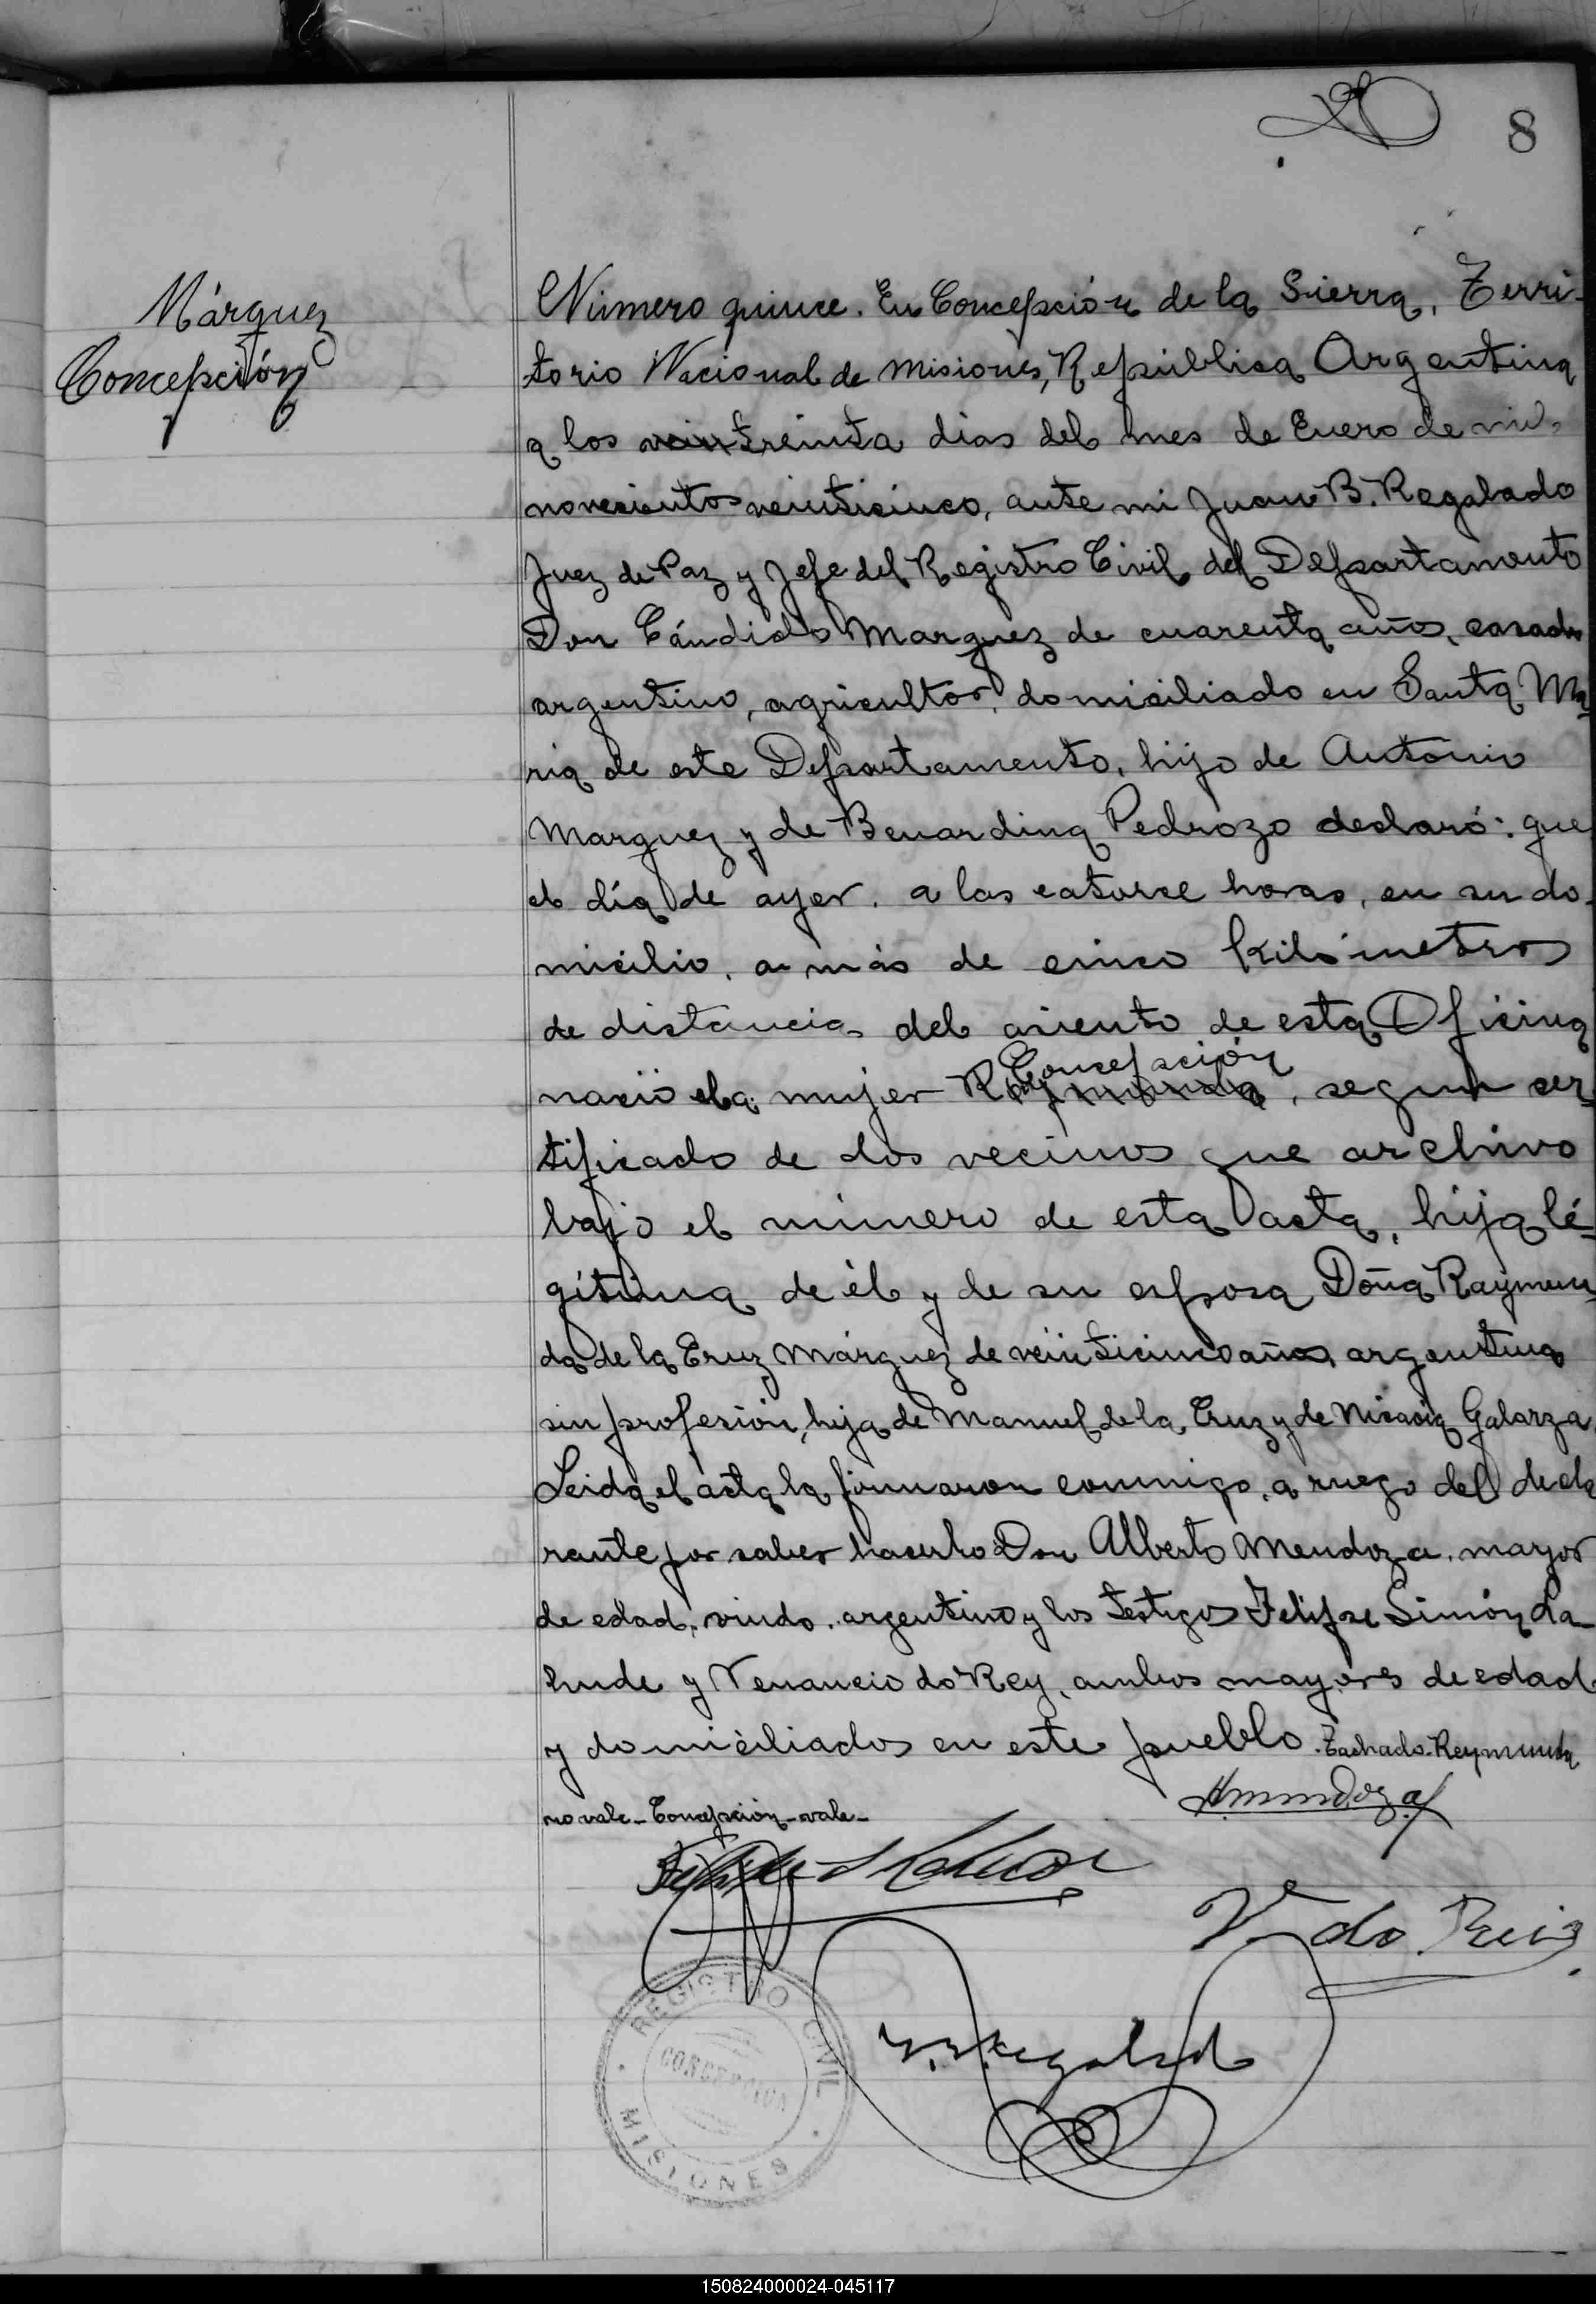 8
Márquez
Concepción
Número quince. En Concepción de la Sierra, Terri-
torio Nacional de Misiones, República Argentina
a los veintreinta dias del mes de Enero de mil
novecientos veinticinco, ante mi Juan B. Regalado
Juez de Paz y Jefe del Registro Civil del Departamento
Don Cándido Marquez de cuarenta años, casado
argentino, agricultor, domiciliado en Santa Ma-
ria de este Departamento, hijo de Antonio
Marquez y de Benardina Pedrozo declaró: que
el día de ayer, a las catorce horas, en su do-
micilio, a más de cinco kilómetros
de distancia del asiento de esta Oficina
nació la mujer Reymunda Concepción, segun cer-
tificado de dos vecinos que archivo
bajo el número de esta acta, hija lé-
gítima de él y de su esposa Doña Raymun-
da de la Cruz Márquez de veinticinco años, argentina
sin profesión, hija de Manuel de la Cruz y de Nicasia Galarza.
Leida el acta la firmaron conmigo, a ruego del decla
rante por saber hacerlo Don Alberto Mendoza, mayor
de edad, viudo, argentino y los testigos Felipe Simón La-
hude y Venancio do Rey, ambos mayores de edad
y domiciliados en este pueblo. Tachado-Reymunda
no vale-Concepción-vale-
AMendoza
V. do Rey
REGISTRO CIVIL
CONCEPCION
MISIONES
150824000024-045117